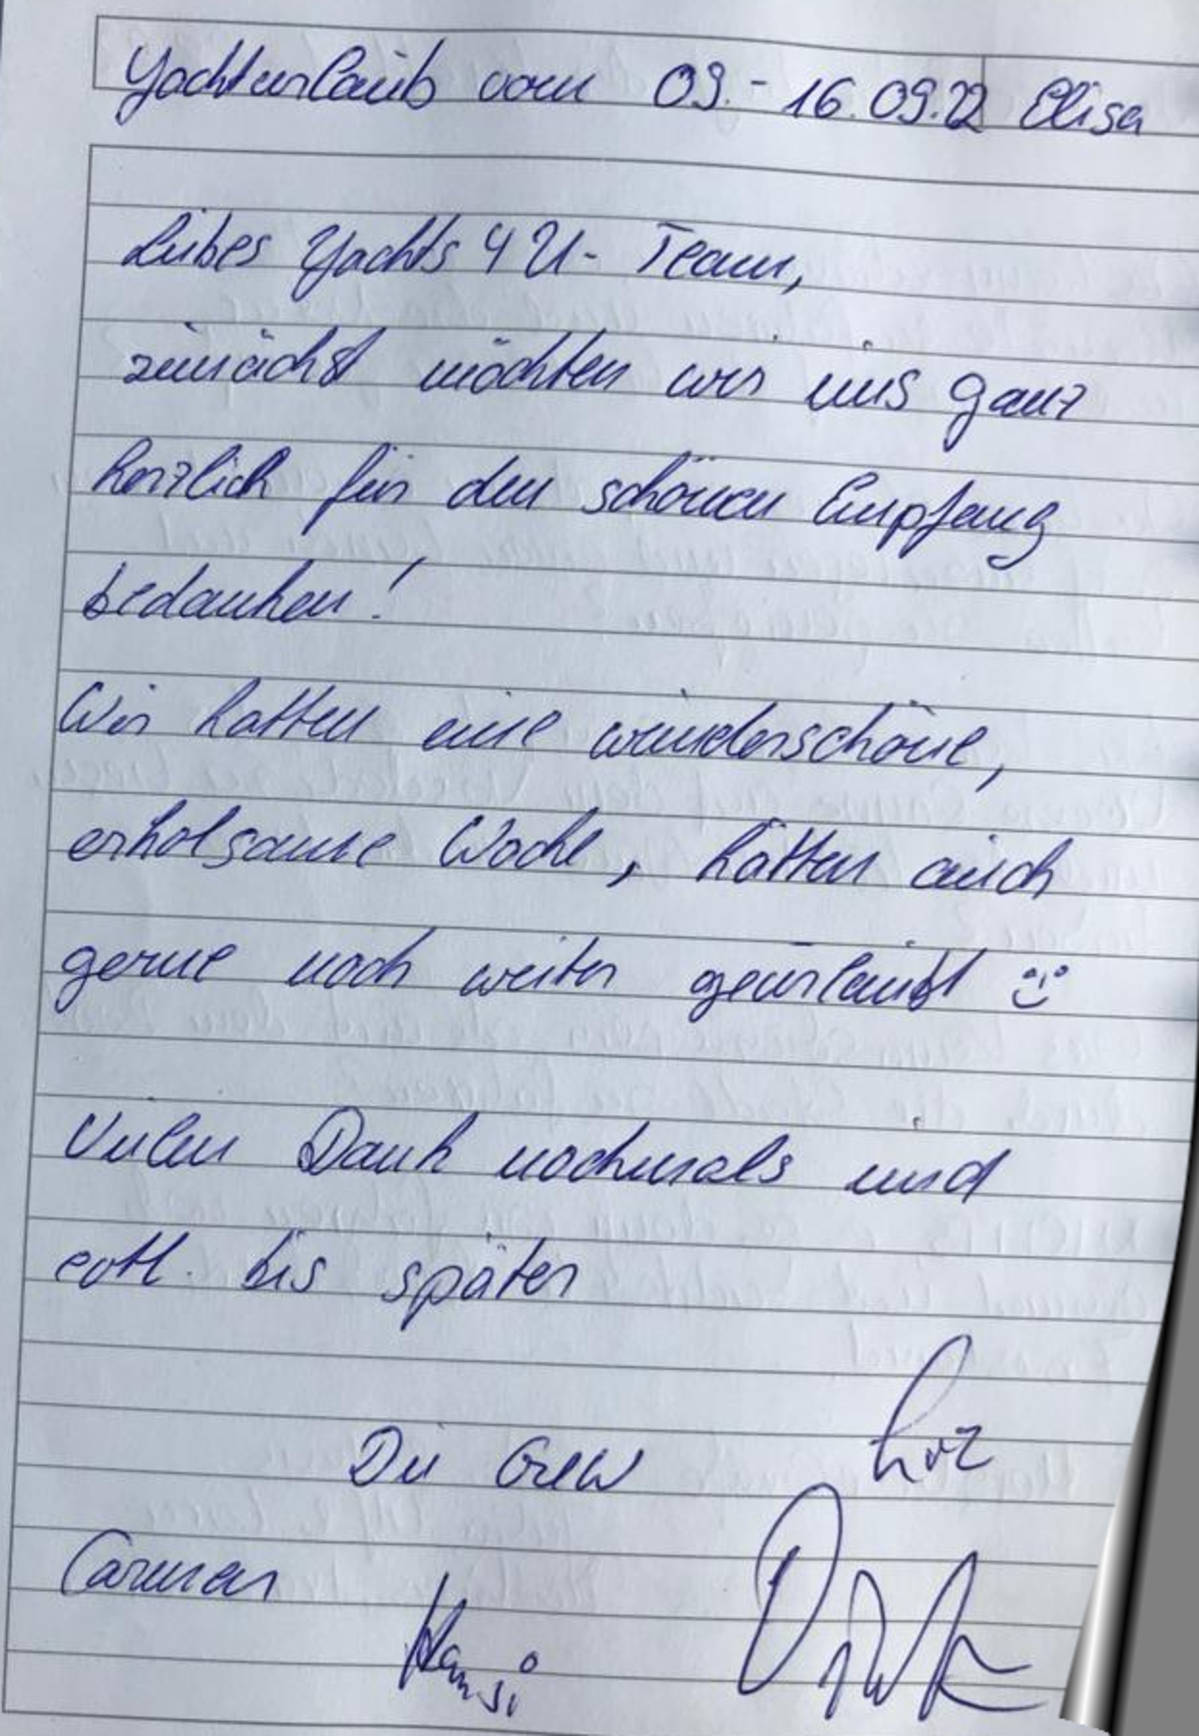 Yachturlaub vom 09.-16.09.22 Elisa
Liebes Yachts 4 U- Team,
zunächst möchten wir uns ganz
herzlich für den schönen Empfang
bedanken!
Wir hatten eine wunderschöne,
erholsame Woche, hätten auch
gerne noch weiter geurlaubt :)
Vielen Dank nochmals und
evtl. bis später
Die Crew
Carmen Hansi Dirk